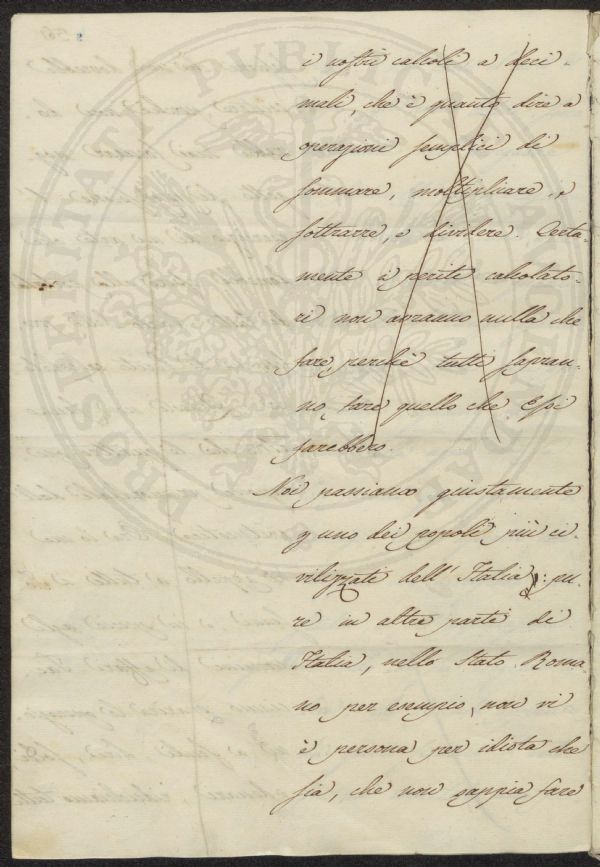 i nostri calcoli a deci-
mali, che è quanto dire a
operazioni semplici di
sommare, moltipliare, e
sottrarre, e dividere. Certa-
mente i periti calcolato-
ri non avranno nulla che
fare, perchè tutti sapran-
no, fare quello che Essi
farebbero.
Noi passiamo giustamente
p uno dei popoli più ci-
vilizzati dell' Italia: pu-
re in altre parti di
Italia, nello Stato Roma-
no per esempio, non vi
è persona per idiota che
sia, che non sappia fare